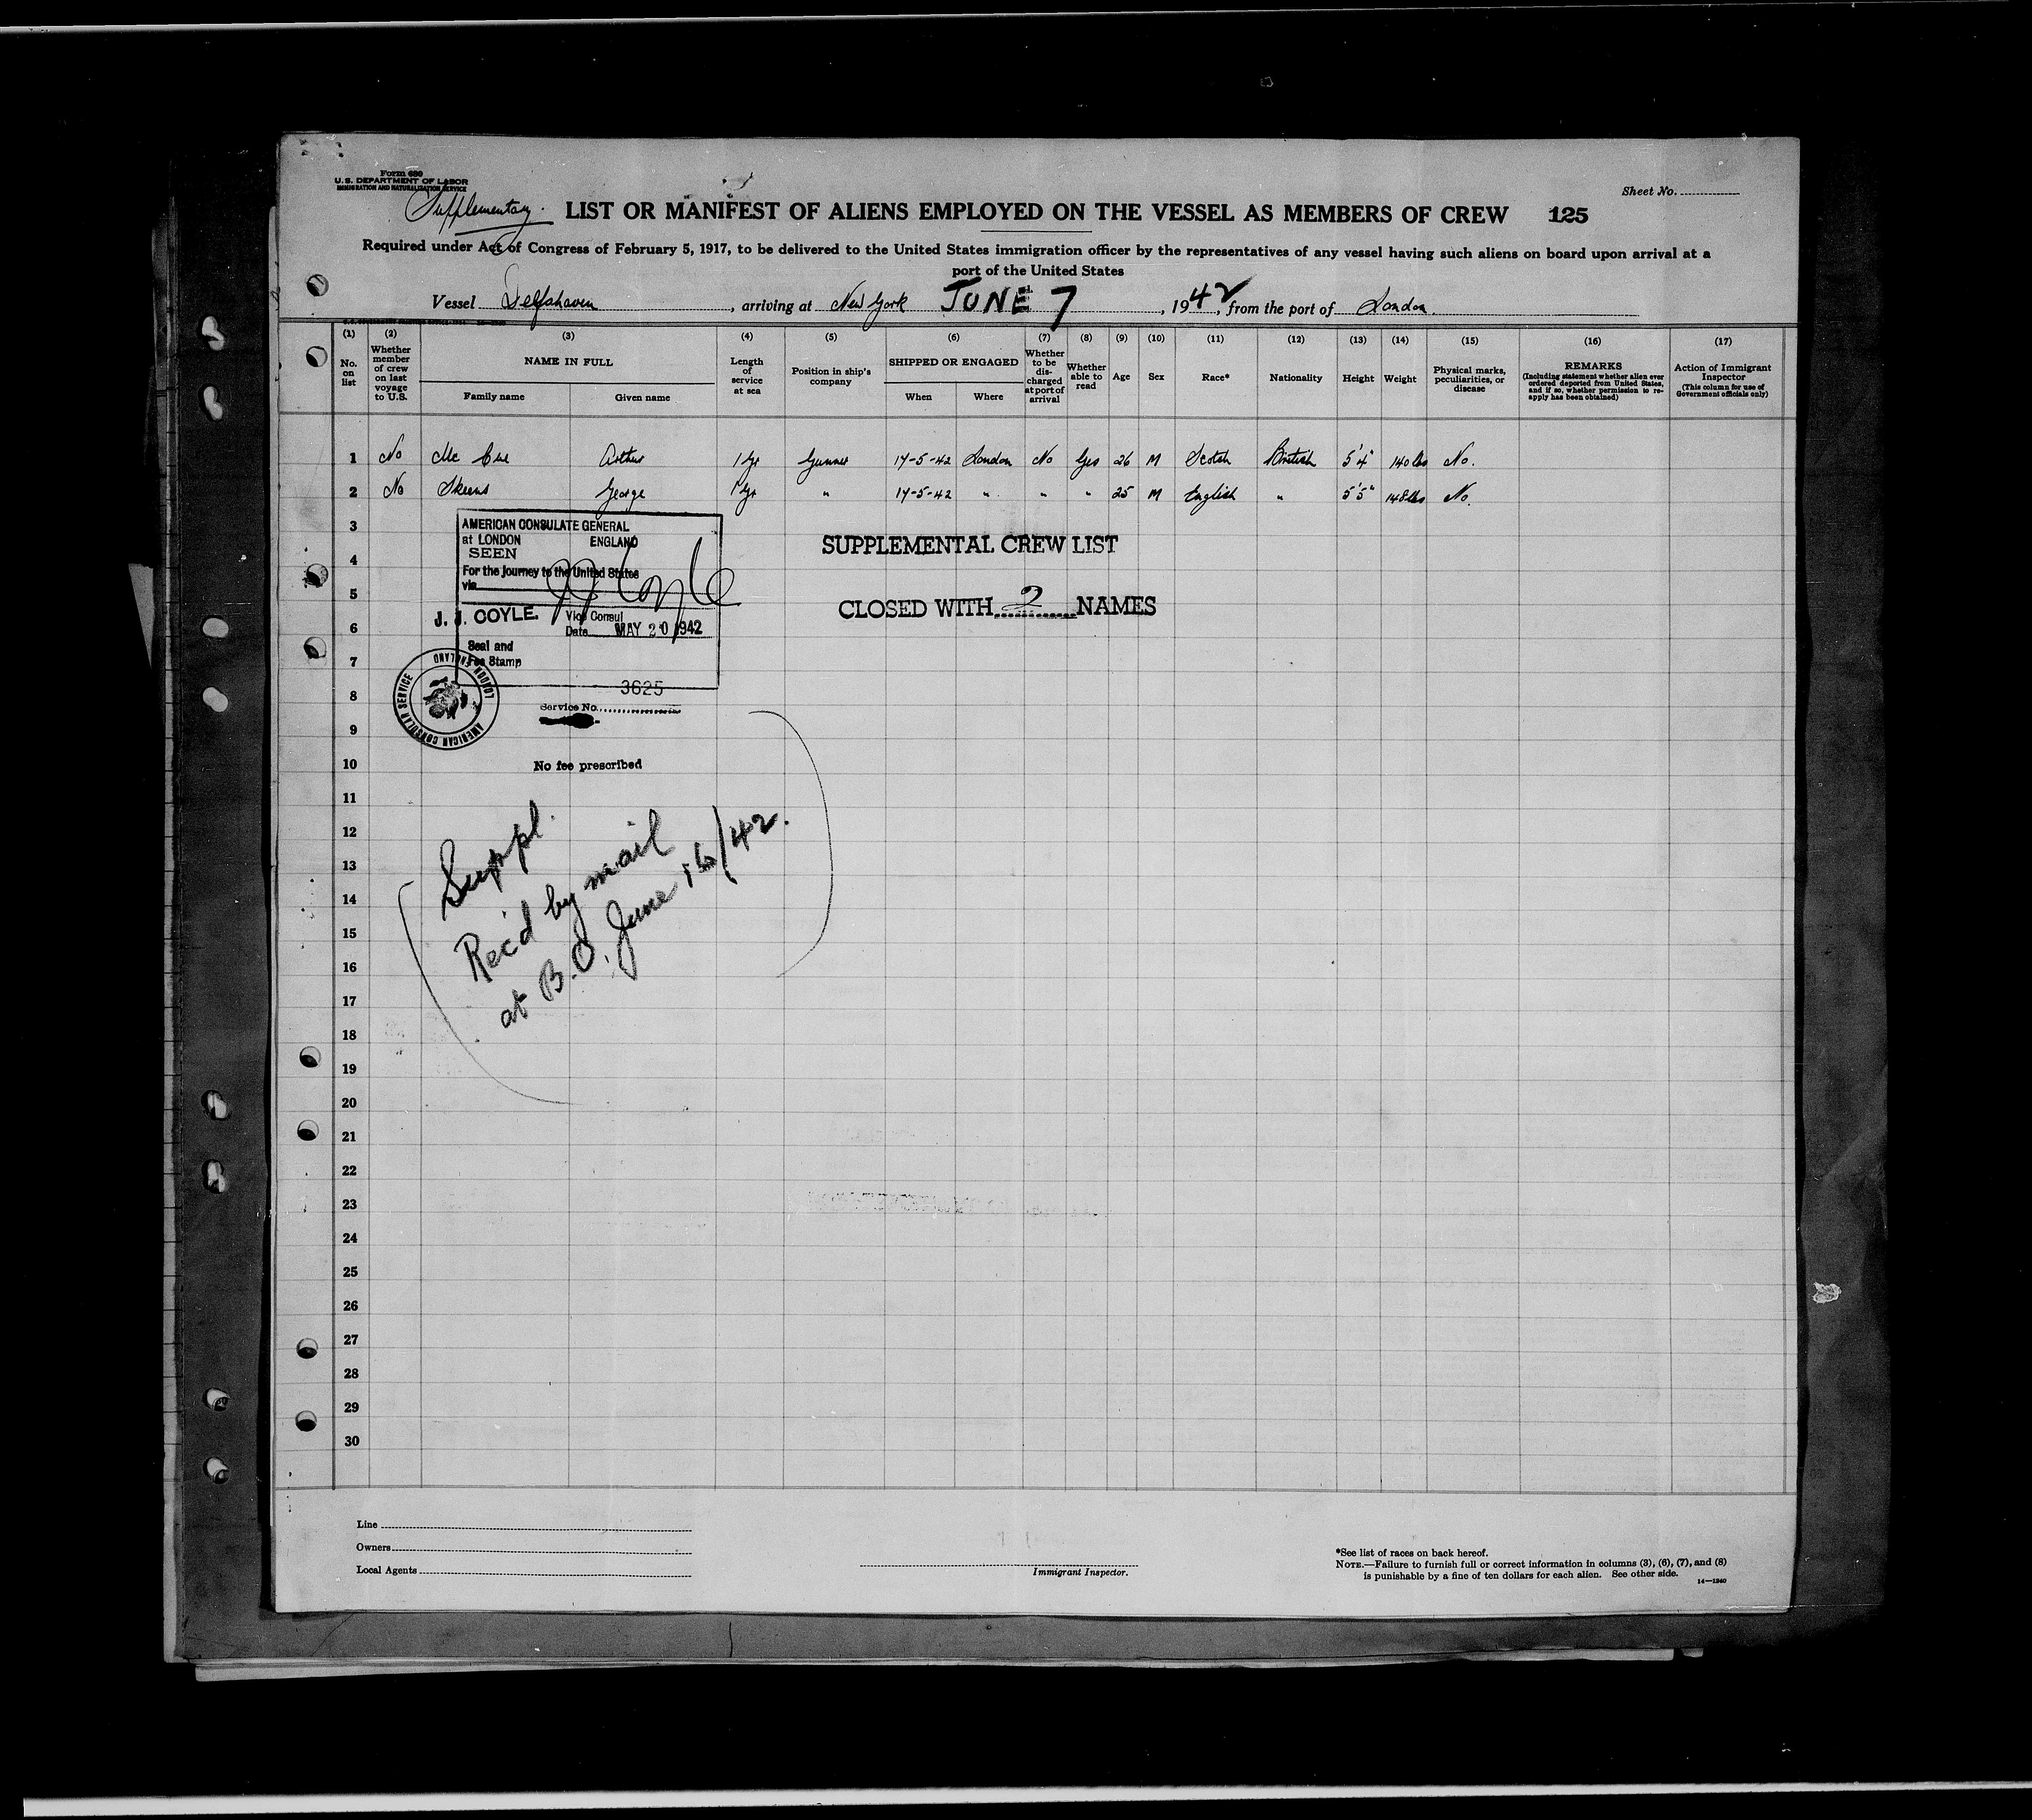 Form 680
U.S. DEPARTMENT OF LABOR
IMMIGRATION AND NATURALIZATION SERVICE
Sheet No.
Supplementary. LIST OR MANIFEST OF ALIENS EMPLOYED ON THE VESSEL AS MEMBERS OF CREW 125
Required under Act of Congress of February 5, 1917, to be delivered to the United States immigration officer by the representatives of any vessel having such aliens on board upon arrival at a
port of the United States
Vessel Delfshaven, arriving at New York JUNE 7, 1942, from the port of London.
(1) (2) (3) (4) (5) (6) (7) (8) (9) (10) (11) (12) (13) (14) (15) (16) (17)
No. on list
Whether member of crew on last voyage to U.S.
NAME IN FULL
Family name Given name
Length of service at sea
Position in ship's company
SHIPPED OR ENGAGED
When Where
Whether to be discharged at port of arrival
Whether able to read
Age
Sex
Race*
Nationality
Height
Weight
Physical marks, peculiarities, or disease
REMARKS
(Including statement whether alien ever ordered deported from United States, and if so, whether permission to reapply has been obtained)
Action of Immigrant Inspector
(This column for use of Government officials only)
1 No Mc Cue Arthur 1 Yr Gunner 17-5-42 London No Yes 26 M Scotch British 5'4" 140 lbs No.
2 No George 1 Yr " 17-5-42 " " " 25 M English " 5'5" 148 lbs No.
3
4
5
6
7
8
9
10
11
12
13
14
15
16
17
18
19
20
21
22
23
24
25
26
27
28
29
30
AMERICAN CONSULATE GENERAL
at LONDON ENGLAND
SEEN
For the journey to the United States
via
J J Coyle
J. J. COYLE. Vice Consul
Date MAY 20 1942
Seal and
Fee Stamp
3625
Service No.
AMERICAN CONSULAR SERVICE LONDON ENGLAND
No fee prescribed
SUPPLEMENTAL CREW LIST
CLOSED WITH 2 NAMES
Suppl.
Rec'd by mail
at B.O. June 16/42.
Line
Owners
Local Agents
Immigrant Inspector.
*See list of races on back hereof.
NOTE.—Failure to furnish full or correct information in columns (3), (6), (7), and (8)
is punishable by a fine of ten dollars for each alien. See other side.
14—1240